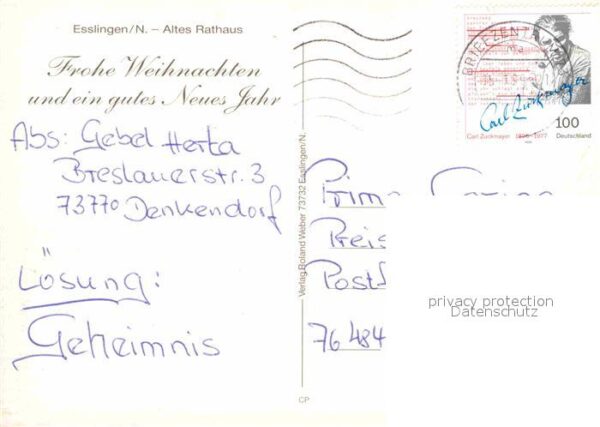 Esslingen/N. – Altes Rathaus
Frohe Weihnachten
und ein gutes Neues Jahr
Abs: Gebel Herta
Breslauerstr. 3
73770 Denkendorf
Lösung:
Geheimnis
Verlag Roland Weber 73732 Esslingen/N.
CP
BRIEFZENT
Carl Zuckmayer
100
Carl Zuckmayer 1896-1977 Deutschland
Prima
Preis
Post
76484
privacy protection
Datenschutz